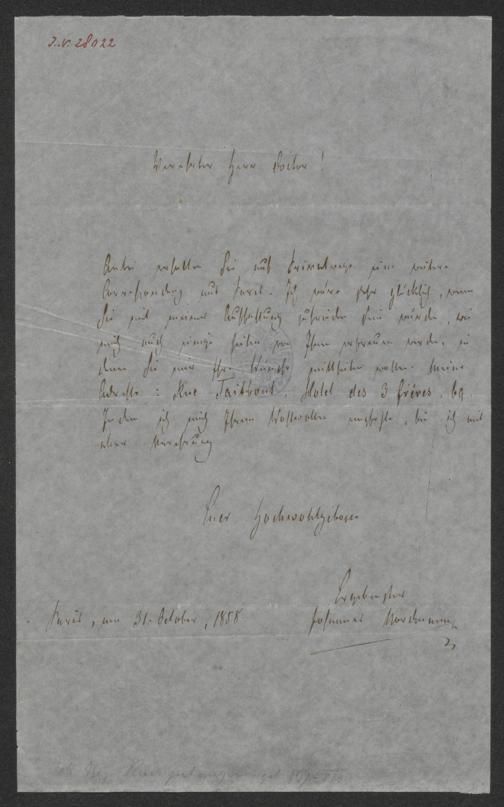 J.N. 28022
Verehrter Herr Doctor!
Anbei erhalten Sie auf Privatwege eine weitere
Correspondenz aus Paris. Ich wäre sehr glücklich, wenn
Sie mit meiner Auffassung zufrieden sein würden, wie
mich auch einige Zeilen von Ihnen erfreuen werden, in
denen Sie mir Ihre Wünsche mittheilen wollen. Meine
Adresse: Rue Taitbout, Hotel des 3 frères,
Indem ich mich Ihrem Wohlwollen empfehle, bin ich mit
aller Verehrung
Euer Hochwohlgeboren
Ergebenster
Paris, am 31. October, 1858
Johannes Nordmann